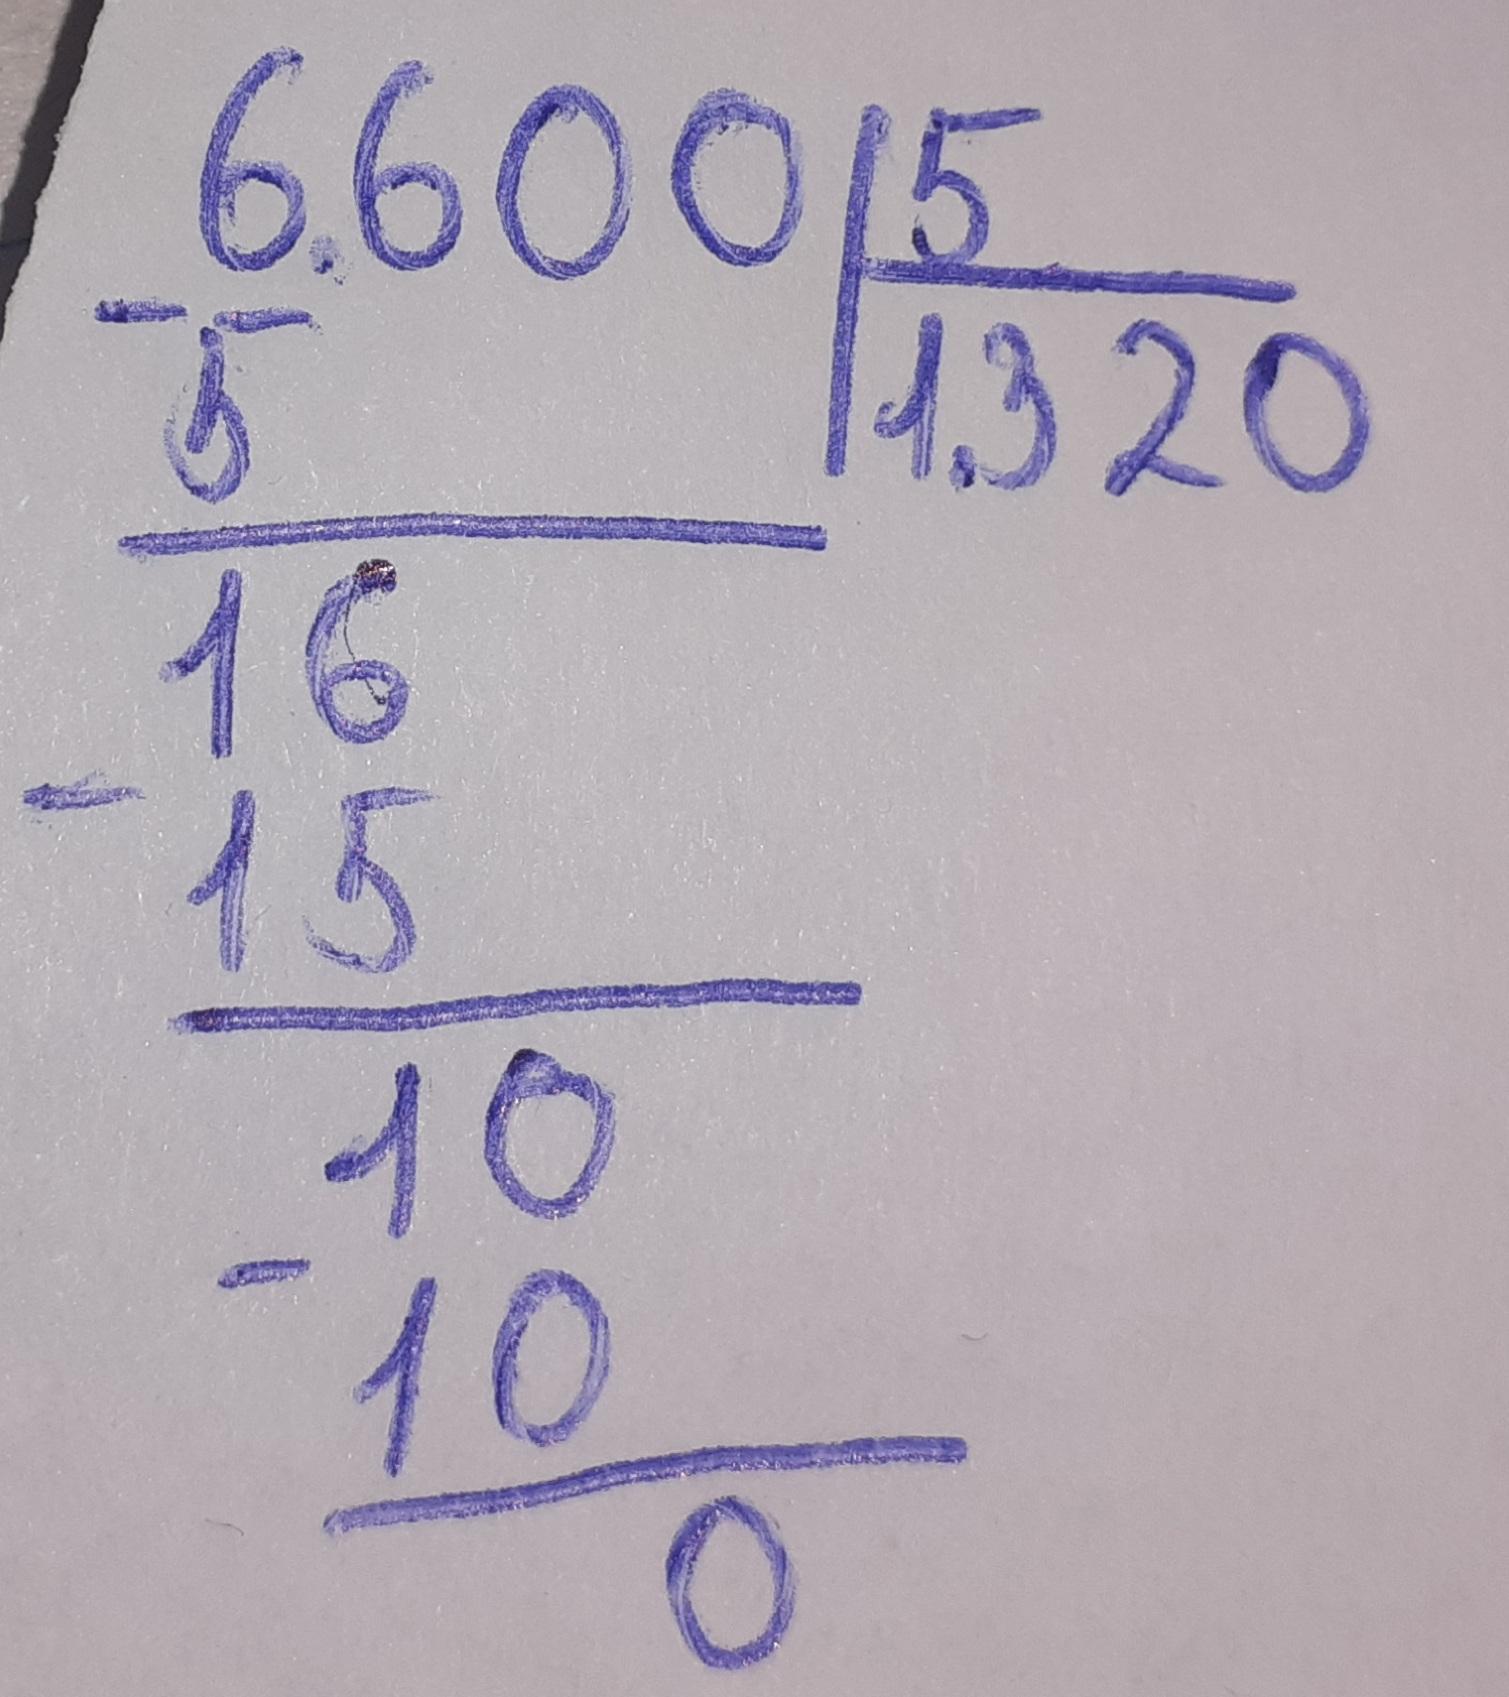 6.600 5
- 5 1.320
16
- 15
10
- 10
0